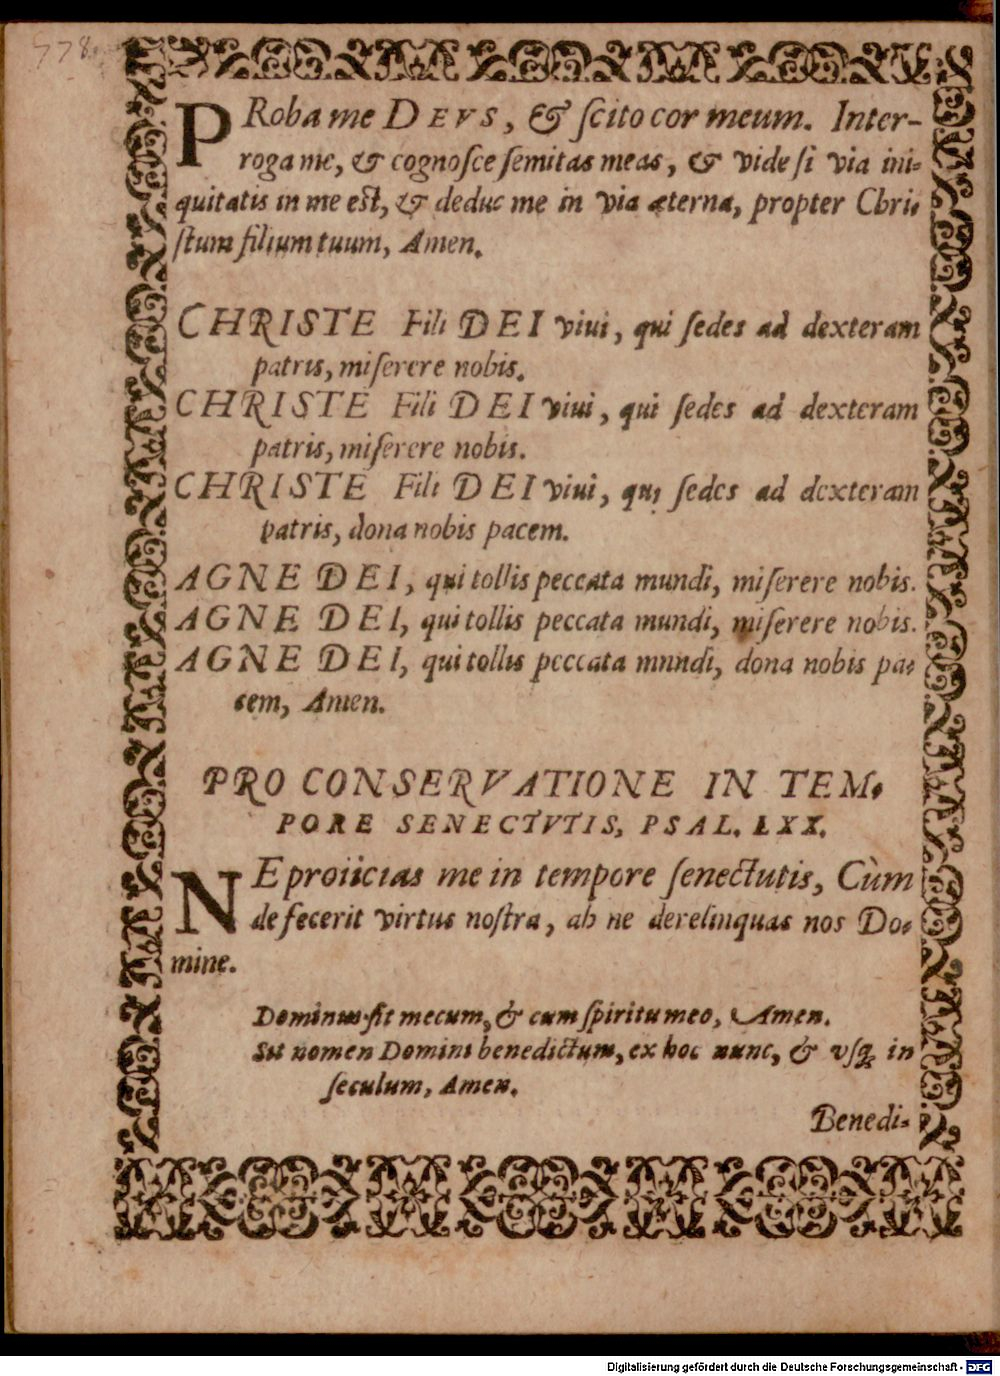 778.
PRoba me DEVS, & ſcito cor meum. Inter-
roga me, & cognoſce ſemitas meas, & vide ſi via ini-
quitatis in me eſt, & deduc me in via æterna, propter Chri-
ſtum filium tuum, Amen.
CHRISTE Fili DEI viui, qui ſedes ad dexteram
patris, miſerere nobis.
CHRISTE Fili DEI viui, qui ſedes ad dexteram
patris, miſerere nobis.
CHRISTE Fili DEI viui, qui ſedes ad dexteram
patris, dona nobis pacem.
AGNE DEI, qui tollis peccata mundi, miſerere nobis.
AGNE DEI, qui tollis peccata mundi, miſerere nobis.
AGNE DEI, qui tollis peccata mnndi, dona nobis pa-
cem, Amen.
PRO CONSERVATIONE IN TEM-
PORE SENECTVTIS, PSAL. LXX.
NE proiicias me in tempore ſenectutis, Cùm
defecerit virtus noſtra, ah ne derelinquas nos Do-
mine.
Dominus ſit mecum, & cum ſpiritu meo, Amen.
Sit nomen Domini benedictum, ex hoc nunc, & vſq; in
ſeculum, Amen.
Benedi-
Digitalisierung gefördert durch die Deutsche Forschungsgemeinschaft - DFG